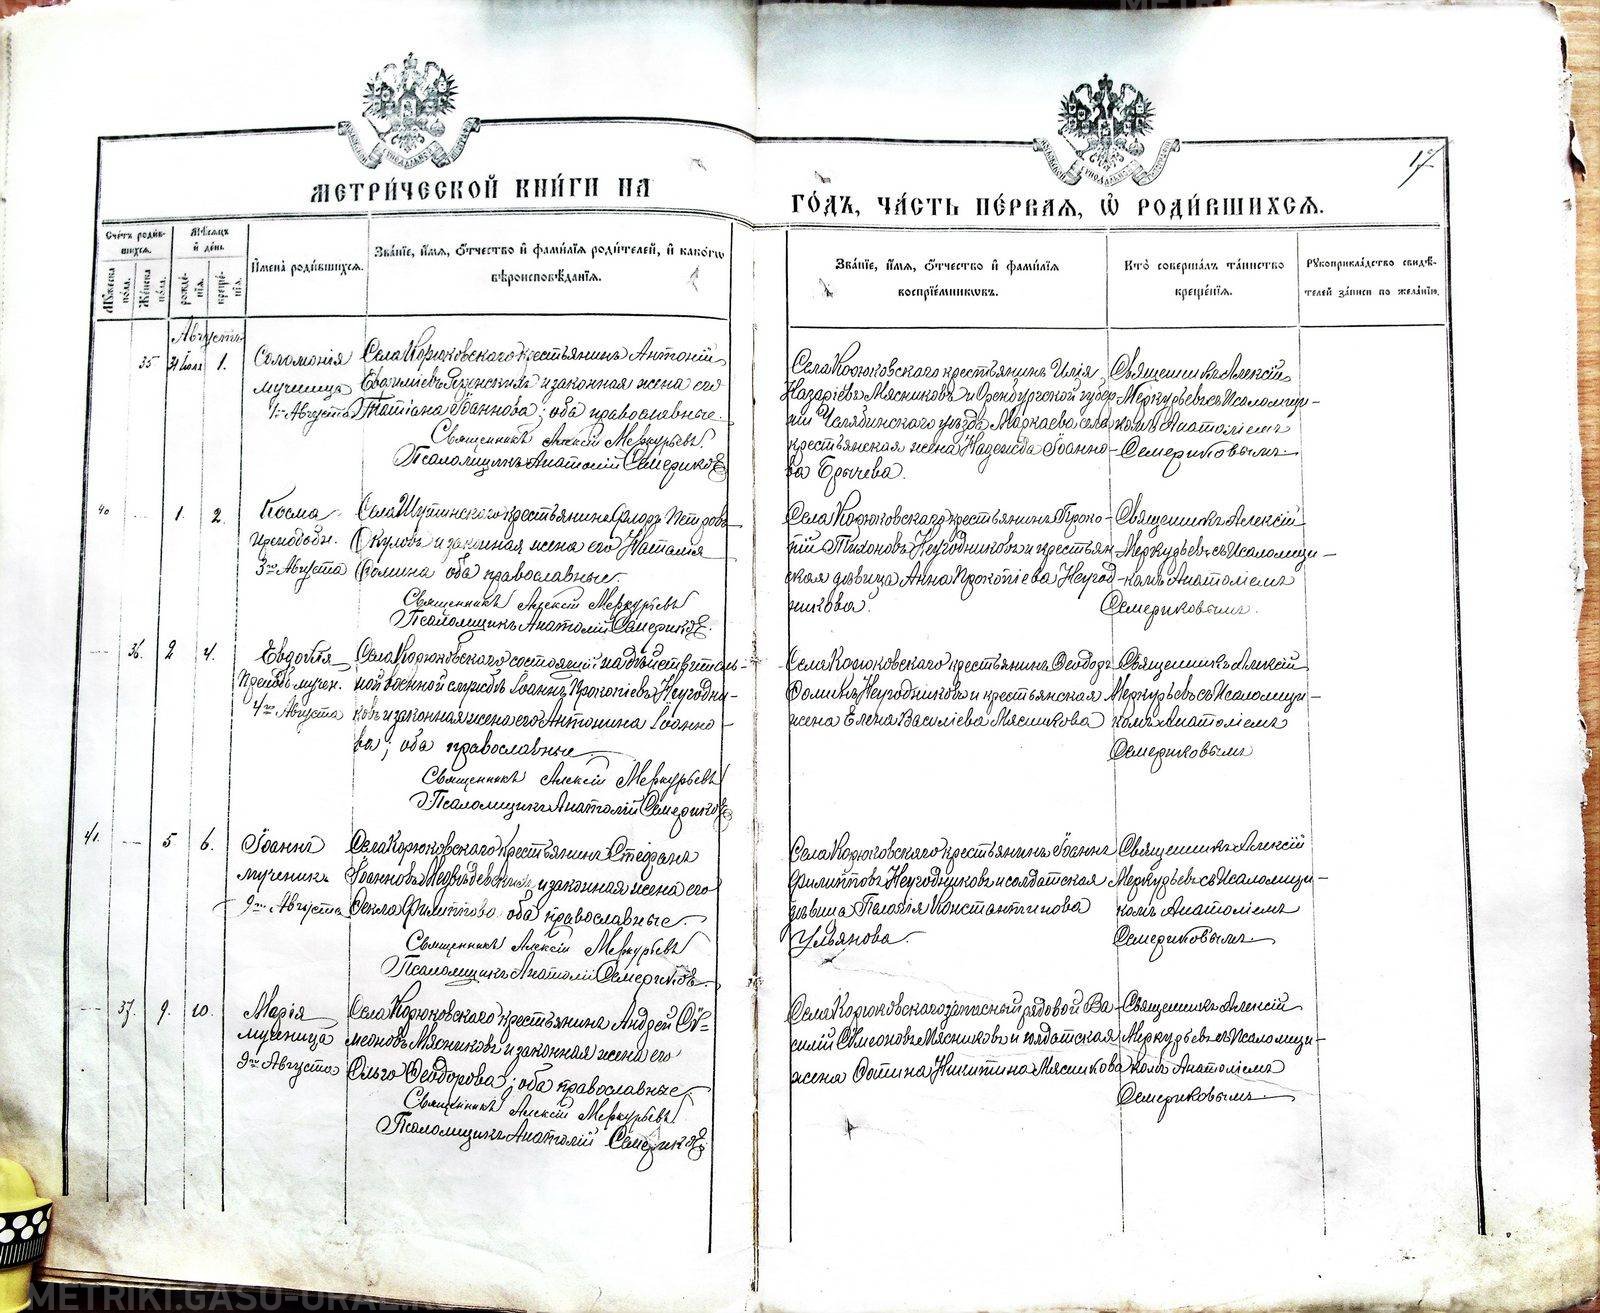 METRIKI.GASU-URAL.RU
МЕТРИ́ЧЕСКОЙ КНИ́ГИ НА
ГО́ДЪ, ЧА́СТЬ ПЕ́РВАЯ, Ѡ҆ РОДИ́ВШИХСѦ.
Сче́тъ роди́в-
шихсѧ.
Мꙋ́жеска по́ла.
Же́нска по́ла.
Мѣ́сѧцъ
и҆ де́нь
рожде́-
нїѧ.
креще́-
нїѧ.
И҆мена̀ роди́вшихсѧ.
Зва́нїе, и҆́мѧ, ѻ҆́тчество и҆ фами́лїѧ роди́телей, и҆ како́гѡ
вѣроисповѣ́данїѧ.
Зва́нїе, и҆́мѧ, ѻ҆́тчество и҆ фами́лїѧ
воспрїе́мникѡвъ.
Кто̀ соверша́лъ та́инство
креще́нїѧ.
Рꙋкоприкла́дство свидѣ́-
телей за́писи по жела́нїю.
Августъ
35 31 Іюля 1.
Соломонія
мученица
1го Августа
Села Корюковскаго крестьянинъ Антоній
и законная жена его
Татіана Іоаннова; оба православные.
Священникъ Алексій Меркурьевъ
Псаломщикъ Анатолій Семериковъ
Села Корюковскаго крестьянинъ Илія
Назаріевъ Мясниковъ и Оренбургской губер-
ніи Челябинскаго уѣзда села
крестьянская жена Надежда Іоанно-
ва
Священникъ Алексій
Меркурьевъ съ Псаломщи-
комъ Анатоліемъ
Семериковымъ.
40 1. 2.
Косма
преподобн.
3го Августа
Села Шутинскаго крестьянинъ Флоръ Петровъ
Окуловъ и законная жена его Наталія
Ѳомина оба православные.
Священникъ Алексій Меркурьевъ
Псаломщикъ Анатолій Семериковъ.
Села Корюковскаго крестьянинъ Проко-
пій Тихоновъ Неугодниковъ и крестьян-
ская дѣвица Анна Прокопіева Неугод-
никова.
Священникъ Алексій
Меркурьевъ съ Псаломщи-
комъ Анатоліемъ
Семериковымъ.
36. 2 4.
Евдокія
Преподобномучен.
4го Августа
Села Корюковскаго состоящій на дѣйствитель-
ной военной службѣ Іоаннъ Прокопіевъ Неугодни-
ковъ и законная жена его Антонина Іоанно-
ва; оба православные
Священникъ Алексій Меркурьевъ
Псаломщикъ Анатолій Семериковъ
Села Корюковскаго крестьянинъ Ѳеодоръ
Ѳоминъ Неугодниковъ и крестьянская
жена Елена Василіева Мясникова
Священникъ Алексій
Меркурьевъ съ Псаломщи-
комъ Анатоліемъ
Семериковымъ
41. 5 6.
Іоаннъ
мученикъ
9го Августа
Села Корюковскаго крестьянинъ Стефанъ
Іоанновъ Медвѣдевскихъ и законная жена его
Ѳекла Филиппова оба православные.
Священникъ Алексій Меркурьевъ
Псаломщикъ Анатолій Семериковъ.
Села Корюковскаго крестьянинъ Іоаннъ
Филипповъ Неугодниковъ и солдатская
дѣвица Пелагія Константинова
Ульянова.
Священникъ Алексій
Меркурьевъ съ Псаломщи-
комъ Анатоліемъ
Семериковымъ.
37. 9. 10.
Марія
мученица
9го Августа
Села Корюковскаго крестьянинъ Андрей Си-
меоновъ Мясниковъ и законная жена его
Ольга Ѳеодорова; оба православные.
Священникъ Алексій Меркурьевъ
Псаломщикъ Анатолій Семериковъ
Села Корюковскаго запасный рядовой Ва-
силій Симеоновъ Мясниковъ и солдатская
жена Никитина Мясникова
Священникъ Алексій
Меркурьевъ съ Псаломщи-
комъ Анатоліемъ
Семериковымъ.
METRIKI.GASU-URAL.RU